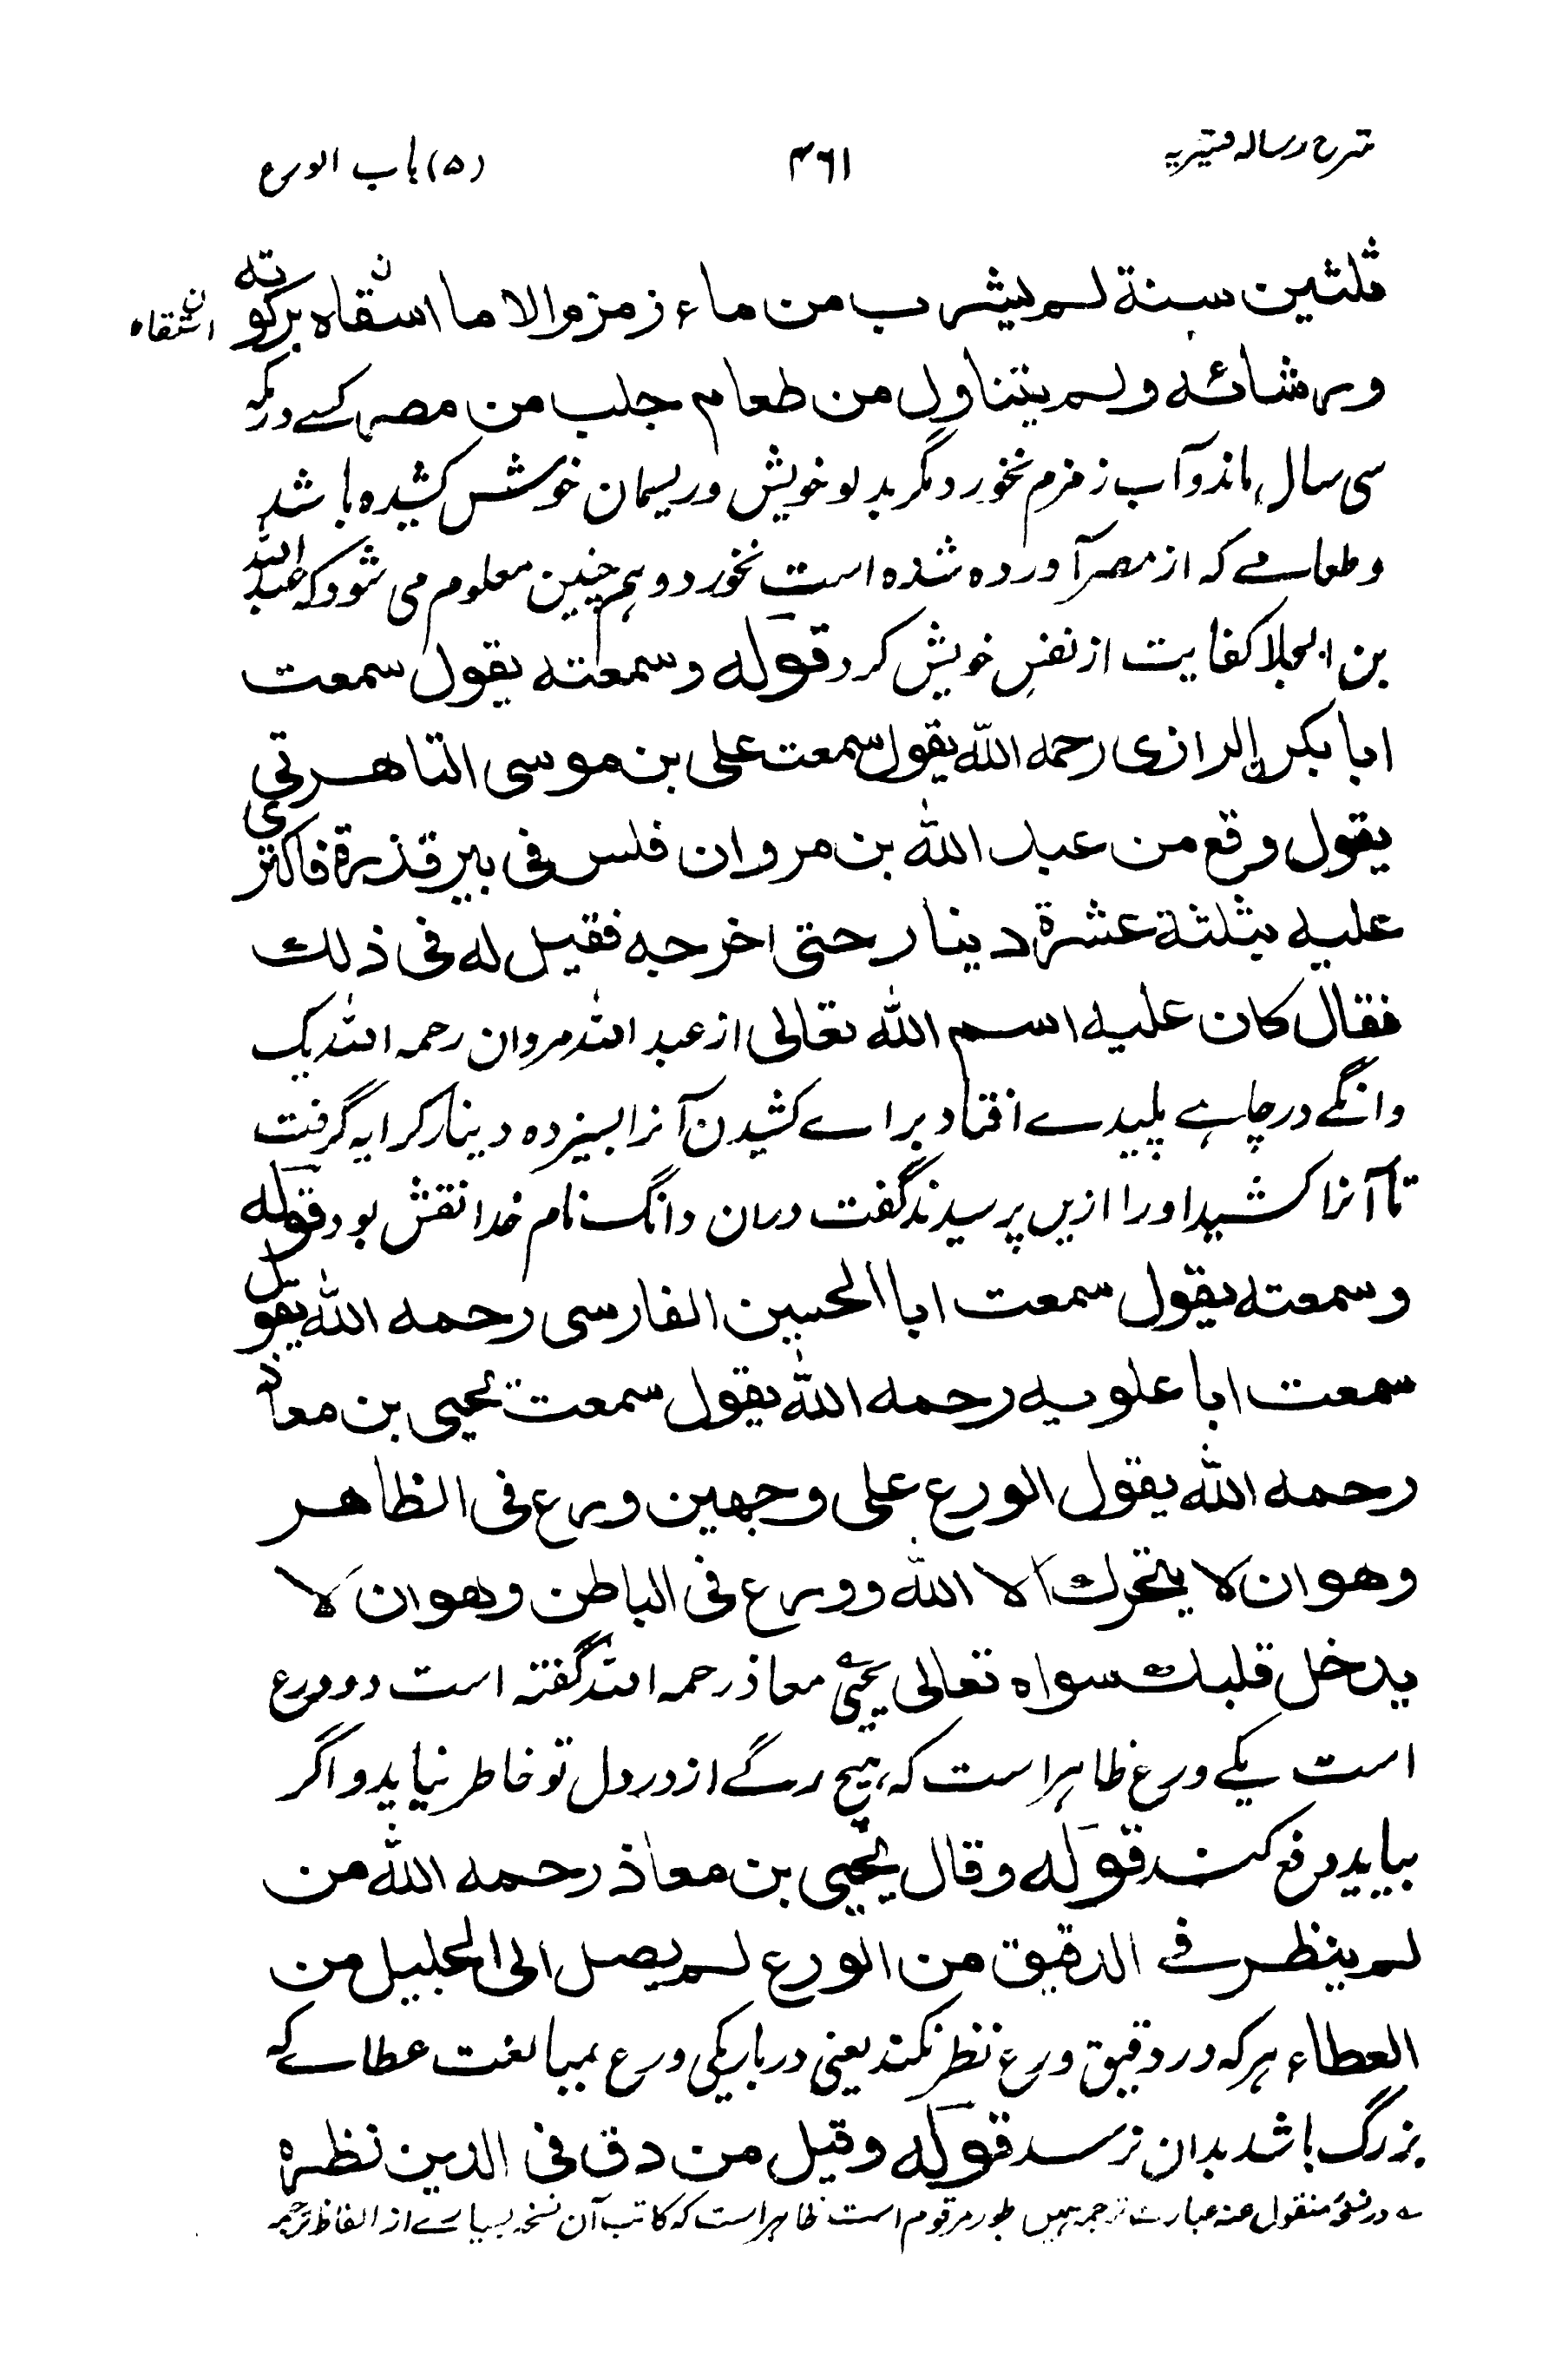 شرح رساله قشیریه
۴۶۱
(۵) باب الورع
ثلثین سنة لم یشرب من ماء زمزم الا ما استقاه برکوته
استقاه
ورشائه ولم یتناول من طعام جلب من مصر کسے در مکہ
سی سال ماند و آب زمزم نخورد مگر بدلو خویش و ریسمان خویش کشیده باشد
و طعامے که از مصر آورده شده است نخورد و ہم چنین معلوم می شود که عبد الله
بن الجلا کفایت از نفس خویش کرد قوله وسمعته یقول سمعت
ابا بکر الرازی رحمه الله یقول سمعت علی بن موسی التاهرتی
یقول وقع من عبد الله بن مروان فلس فی بیر قذرة فاکتری
علیه بثلثة عشرة دینار حتی اخرجه فقیل له فی ذلك
فقال کان علیه اسم الله تعالی از عبد الله مروان رحمه الله یک
دانگے در چاہے پلیدے افتاد براے کشیدن آنرا بسیزده دینار کرایه گرفت
تا آنرا کشید اورا ازیں پرسیدند گفت دران دانگ نام خدا نقش بود قوله
وسمعته یقول سمعت ابا الحسین الفارسی رحمه الله یقول
سمعت ابا علویه رحمه الله یقول سمعت یحیی بن معاذ
رحمه الله یقول الورع علی وجهین ورع فی الظاهر
وهو ان لا یتحرك الا الله و ورع فی الباطن وهو ان لا
یدخل قلبك سواه تعالی یحییٰ معاذ رحمه الله گفته است دو ورع
است یکے ورع ظاہر است که ہیچ رگے از در دل تو خاطر نیاید و اگر
بیاید دفع کند قوله وقال یحیی بن معاذ رحمه الله من
لم ینظر فی الدقیق من الورع لم یصل الی الجلیل من
العطاء ہر که در دقیق ورع نظر نکند یعنی در باریکی ورع بمبالغت عطاے که
بزرگ باشد بدان نرسد قوله وقیل من دق فی الدین نظره
ے در نسخۂ منقول عنہ عبارت ترجمہ ہمیں طور مرقوم است ظاہر است کہ کاتب آن نسخہ بسیارے از الفاظ ترجمہ